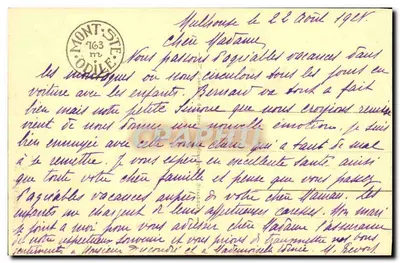 Mulhouse le 22 août 1928.
Chère Madame,
MONT-STE
763
m
ODILE
Nous passons d'agréables vacances dans
les montagnes où nous circulons tous les jours en
voiture avec les enfants. Bernard va tout à fait
bien mais notre petite Simone que nous croyions remise
vient de nous donner une nouvelle émotion. je suis
bien ennuyée avec cette bonne Claire qui a tant de mal
à se remettre. Je vous espère en excellente santé ainsi
que toute votre chère famille et pense que vous passez
d'agréables vacances auprès de votre chère Maman. Les
enfants me chargent de leurs affectueuses caresses. Mon mari
se joint à moi pour vous adresser chère Madame l'assurance
de notre respectueux souvenir et vous prions de transmettre nos bons
sentiments à Monsieur et à Mademoiselle